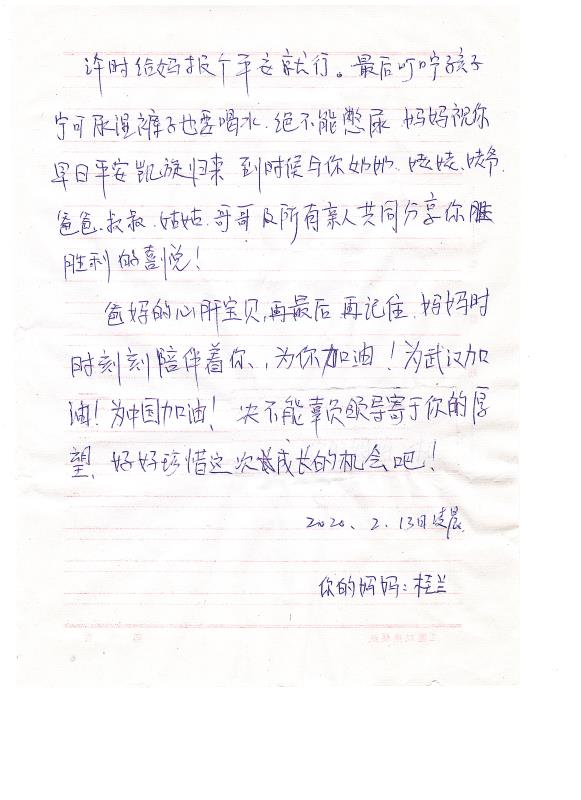 许时给妈报个平安就行。最后叮咛孩子
宁可尿湿裤子也要喝水.绝不能憋尿.妈妈祝你
早日平安凯旋归来 到时候与你奶奶、姥姥、姥爷
爸爸、叔叔、姑姑、哥哥及所有亲人共同分享你
胜利的喜悦!
爸妈的心肝宝贝,再最后再记住.妈妈时
时刻刻陪伴着你、,为你加油!为武汉加
油!为中国加油! 决不能辜负领导寄于你的厚
望、好好珍惜这次成长的机会吧!
2020、2.13日凌晨
你的妈妈:桂兰